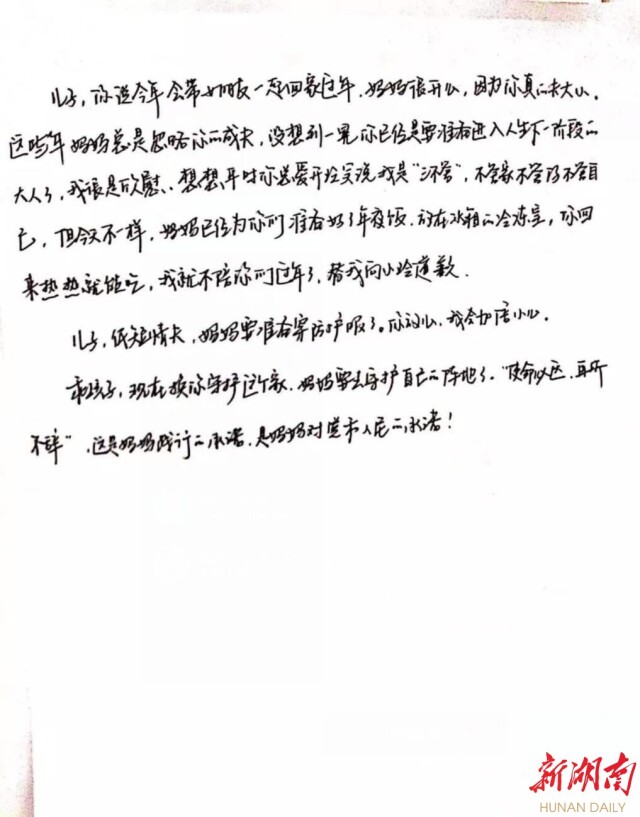 儿子，你说今年会带女朋友一起回家过年，妈妈很开心，因为你真的长大了。
这些年妈妈总是忽略你的成长，没想到一晃你已经是要准备进入人生下一阶段的
大人了，我很是欣慰。想想平时你总爱开玩笑说我是“三不管”，不管家不管你不管自
己，但今天不一样，妈妈已经为你们准备好了年夜饭，放在冰箱的冷冻室，你回
来热热就能吃，我就不陪你们过年了，替我向小玲道歉。
儿子，纸短情长，妈妈要准备穿防护服了。你放心，我会加倍小心。
乖孩子，现在换你守护这个家，妈妈要去守护自己的阵地了。“使命必达，再所
不辞”，这是妈妈践行的承诺，是妈妈对党和人民的承诺！
新湖南
HUNAN DAILY